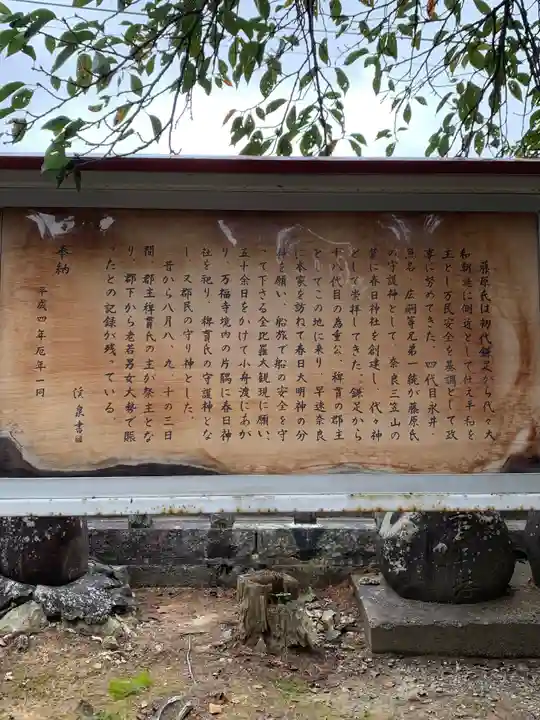 藤原氏は初代鎌足から代々大
和朝廷に側近として仕え平和を
主とし万民安全を基調として政
事に努めてきた。四代目永井
無名 庄嗣等兄弟一統が藤原氏
の守護神として 奈良三笠山の
麓に春日神社を創建し 代々神
として崇拝してきた。鎌足から
十八代目の為重公 稗貫の郡主
としてこの地に来り 早速奈良
に本家を訪ねて春日大明神の分
神を願い、船旅で船の安全を守
って下さる金比羅大観現に願い、
五十余日をかけて小舟渡にあが
り 万福寺境内の片隅に春日神
社を祀り、稗貫氏の守護神とな
し、又郡民の守り神とした。
昔から八月八、九、十の三日
間 郡主稗貫氏の主が祭主とな
り、郡下から老若男女大勢で賑
ったとの記録が残っている。
奉納
平成四年厄年一同
渓泉書